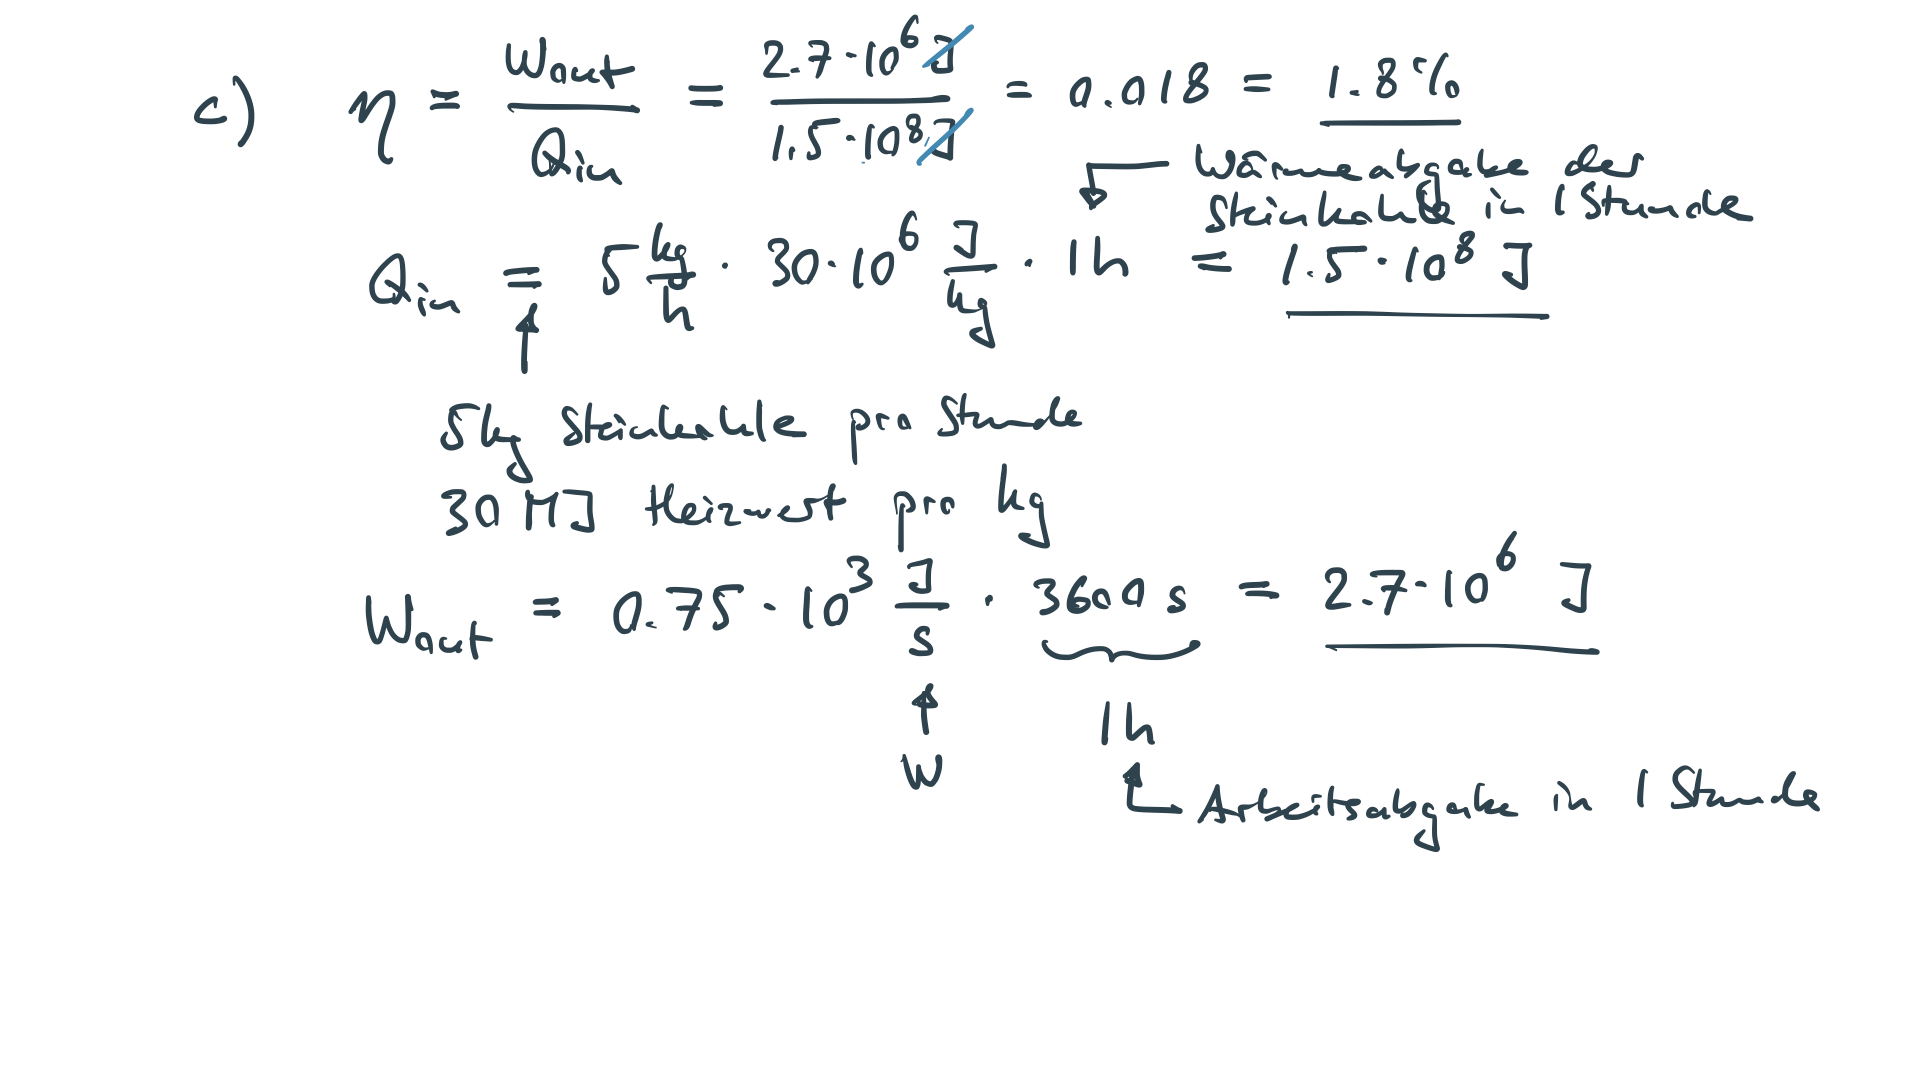 c) η = Wout / Qin = 2.7·10⁶ J / 1.5·10⁸ J = 0.018 = 1.8%
Wärmeabgabe der
Steinkohle in 1 Stunde
Qin = 5 kg/h · 30·10⁶ J/kg · 1h = 1.5·10⁸ J
5kg Steinkohle pro Stunde
30 MJ Heizwert pro kg
Wout = 0.75·10³ J/s · 3600 s = 2.7·10⁶ J
W
1h
Arbeitsabgabe in 1 Stunde